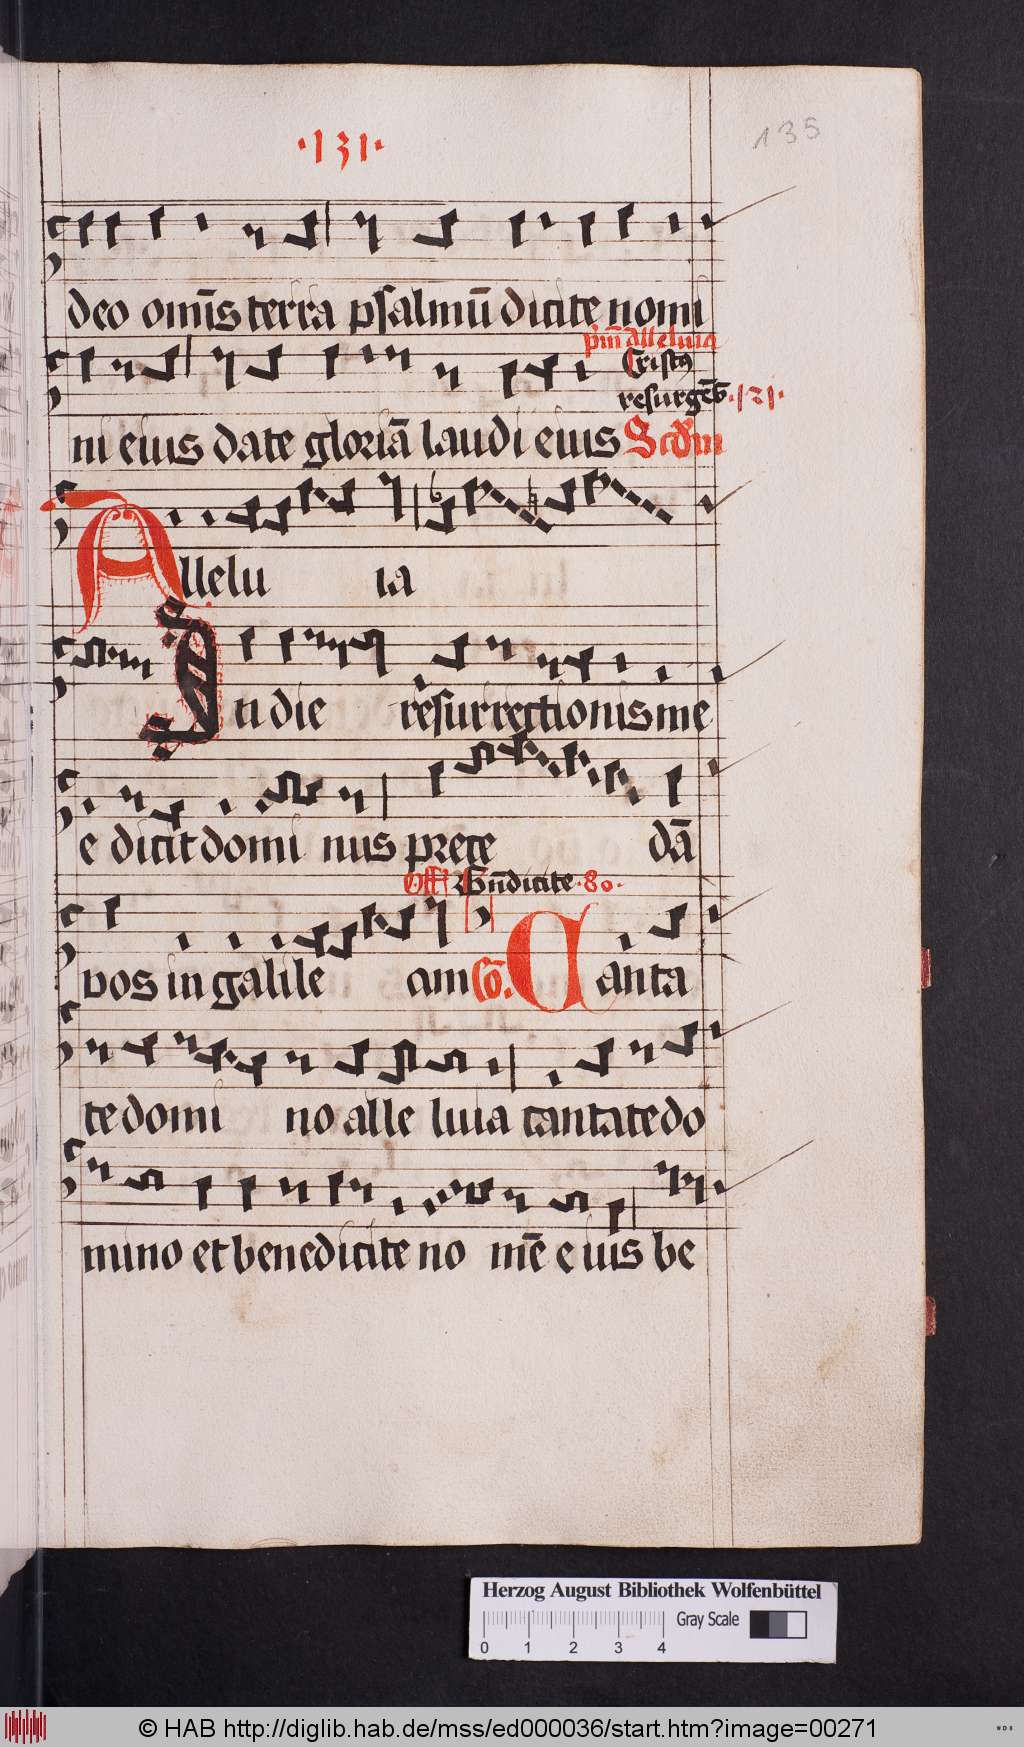 ·131·
135
deo omīs terra psalmū dicite nomi
pm̄ alleluia
Cristꝰ
resurgēs ·121·
ni eius date gloriā laudi eius Scd̄m
Allelu ia
In die resurrectionis me
e dicit domi nus prece dā
Off Bn̄dicite ·80·
vos in galile am Cō. Canta
te domi no alle luia cantate do
mino et benedicite no mē e ius be
Herzog August Bibliothek Wolfenbüttel
Gray Scale
0 1 2 3 4
© HAB http://diglib.hab.de/mss/ed000036/start.htm?image=00271